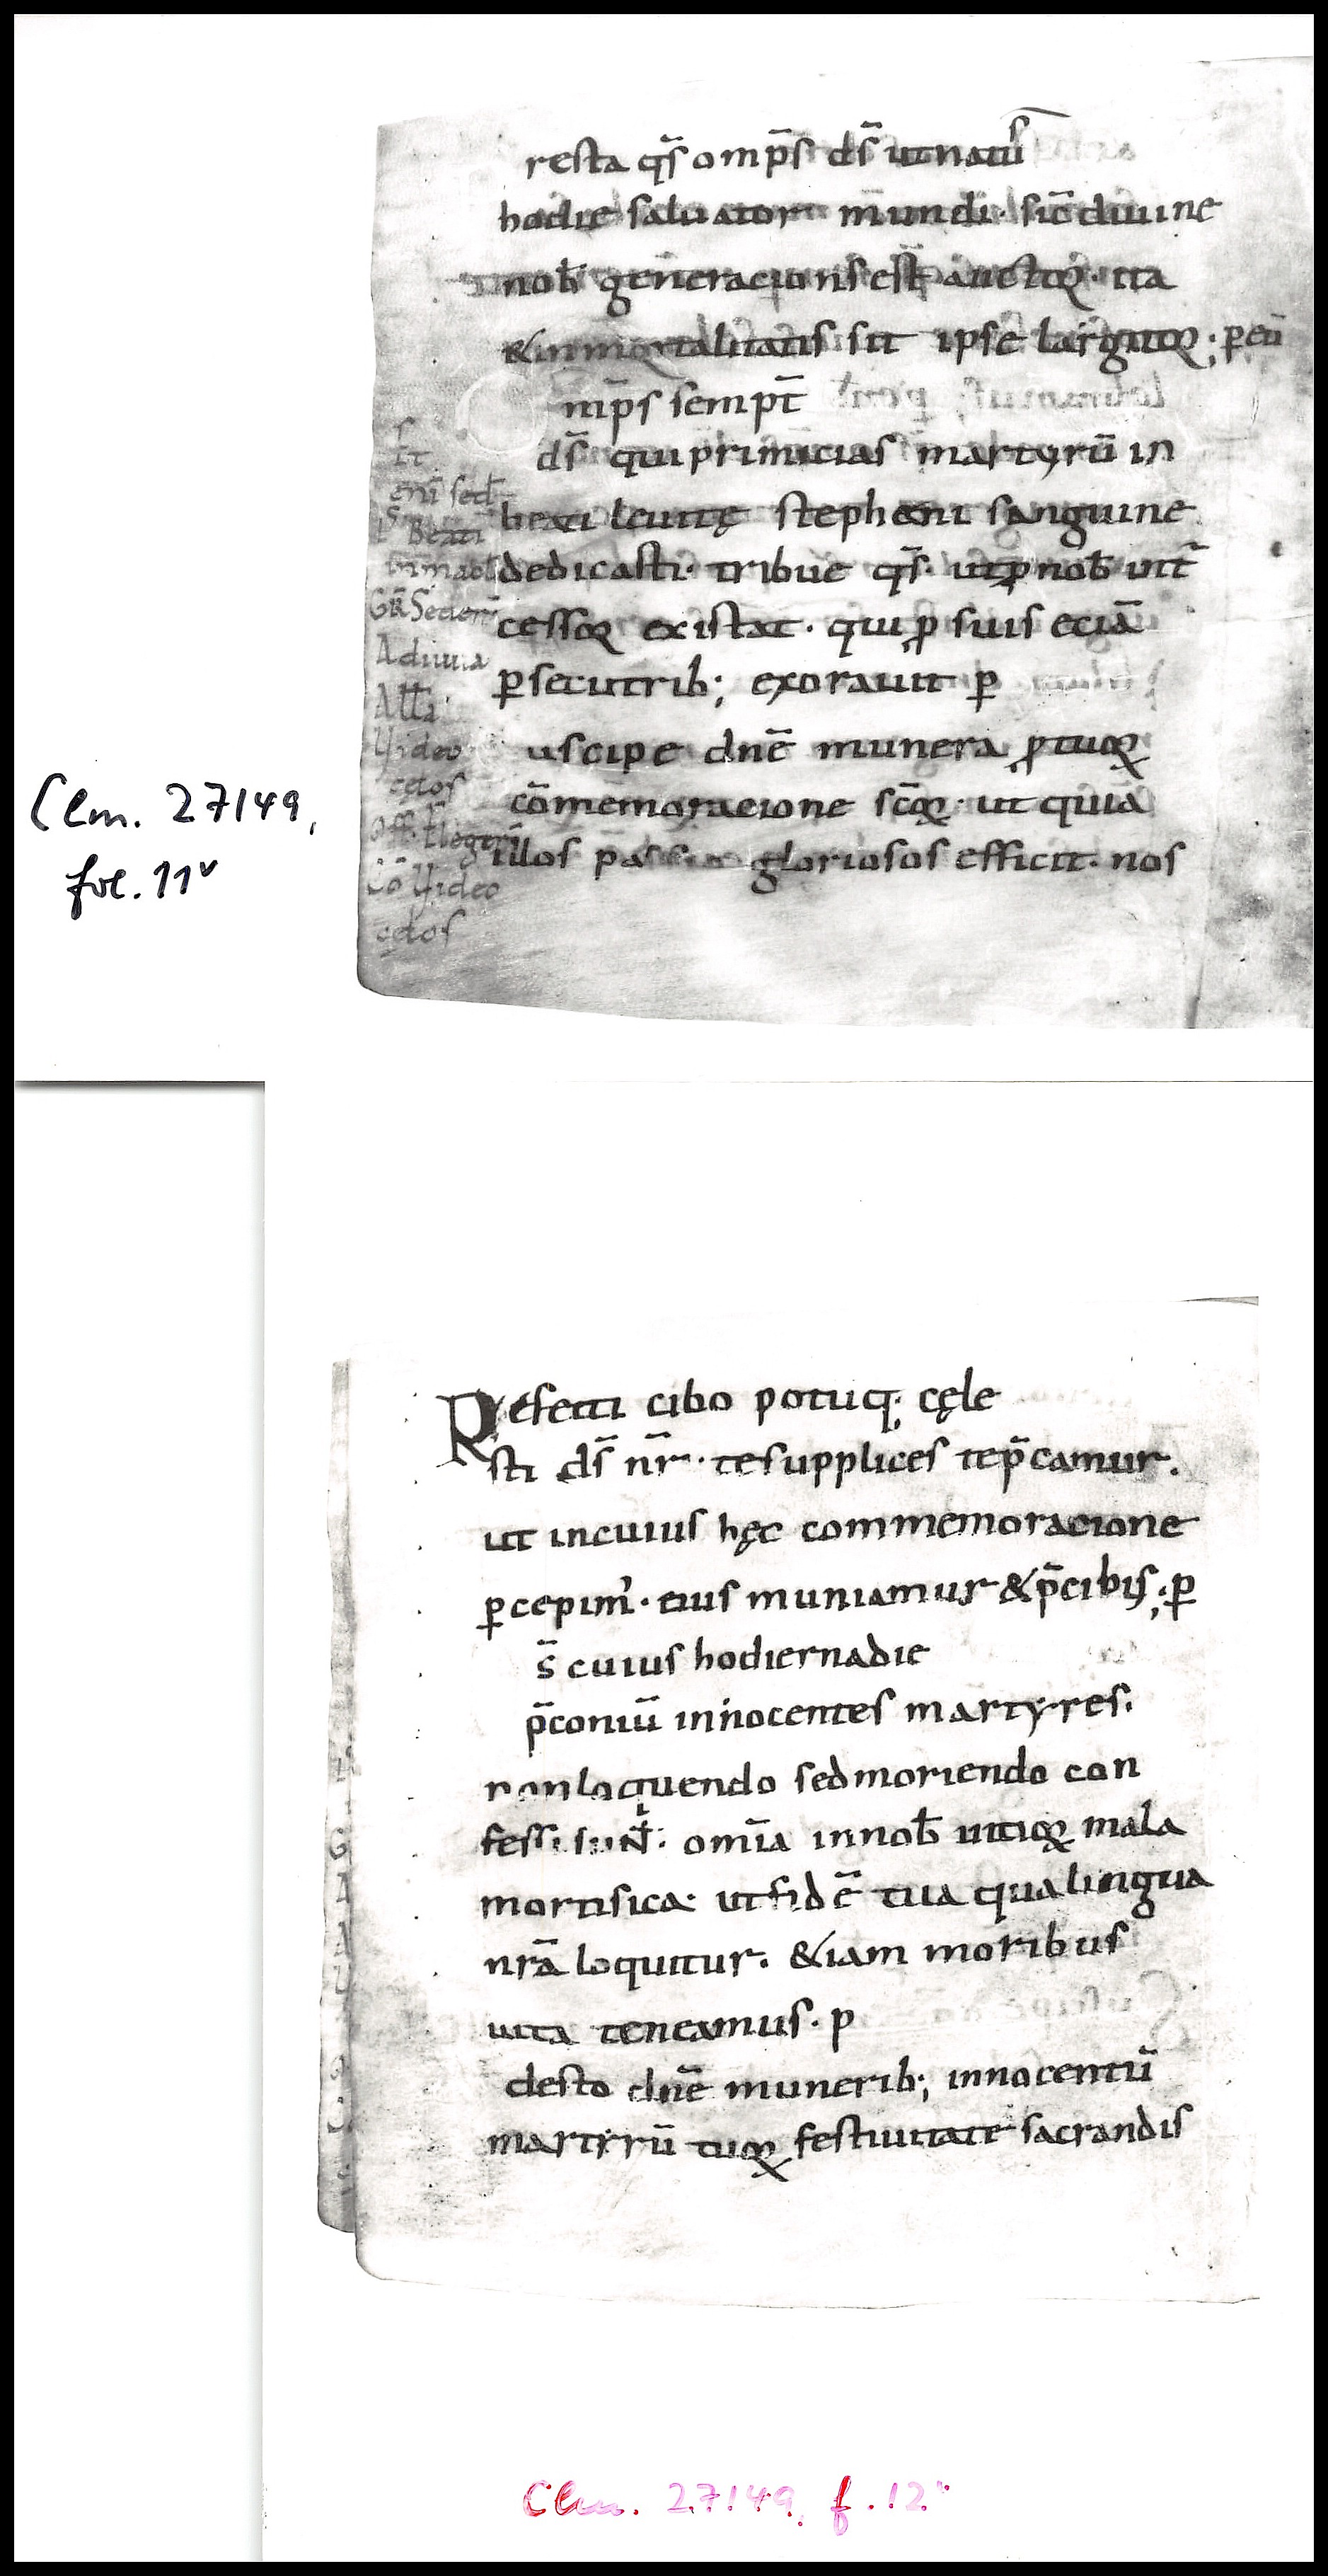 resta qs̄ omp̄s ds̄ ut natꝰ
hodie saluator mundi· sic̄ diuine
nob̄ generacionis est auctoꝝ· ita
& inmortalitatis sit ipse largitoꝝ; ꝑ eū
mp̄s sempt̄
ds̄ qui primicias martyrū in
beati leuitę stephani sanguine
dedicasti· tribue qs̄· ut ꝓ nob̄ int̄
cessoꝝ existat· qui ꝓ suis eciā
ꝑsecutrib; exorauit ꝑ
uscipe dnē munera ꝓ tuoꝝ
cōmemoracione scōꝝ· ut quia
illos passio gloriosos efficit· nos
It
eni sed̄
Beati
Inmacl̄
GR̄ Seder̄
Adiuua
All̄a
Uideo
cęlos
Off. Eleger̄
Cō Uideo
cęlos
Clm. 27149,
fol. 11v
Refecti cibo potuq; cęle
sti ds̄ nr̄· te supplices tep̄camur.
ut in cuius hęc commemoracione
ꝑcepim̕· eius muniamur & p̄cibis; ꝑ
s̄ cuius hodierna die
p̄coniū innocentes martyres.
non loquendo sed moriendo con
fessi sunt̄: om̄ia in nob̄ uitioꝝ mala
mortifica· ut fidē tua qua lingua
nrā loquitur. &iam moribus
uita teneamus· p
desto dnē munerib; innocentū
martyrū tuoꝝ festiuitate sacrandis
Clm. 27149, f. 12r